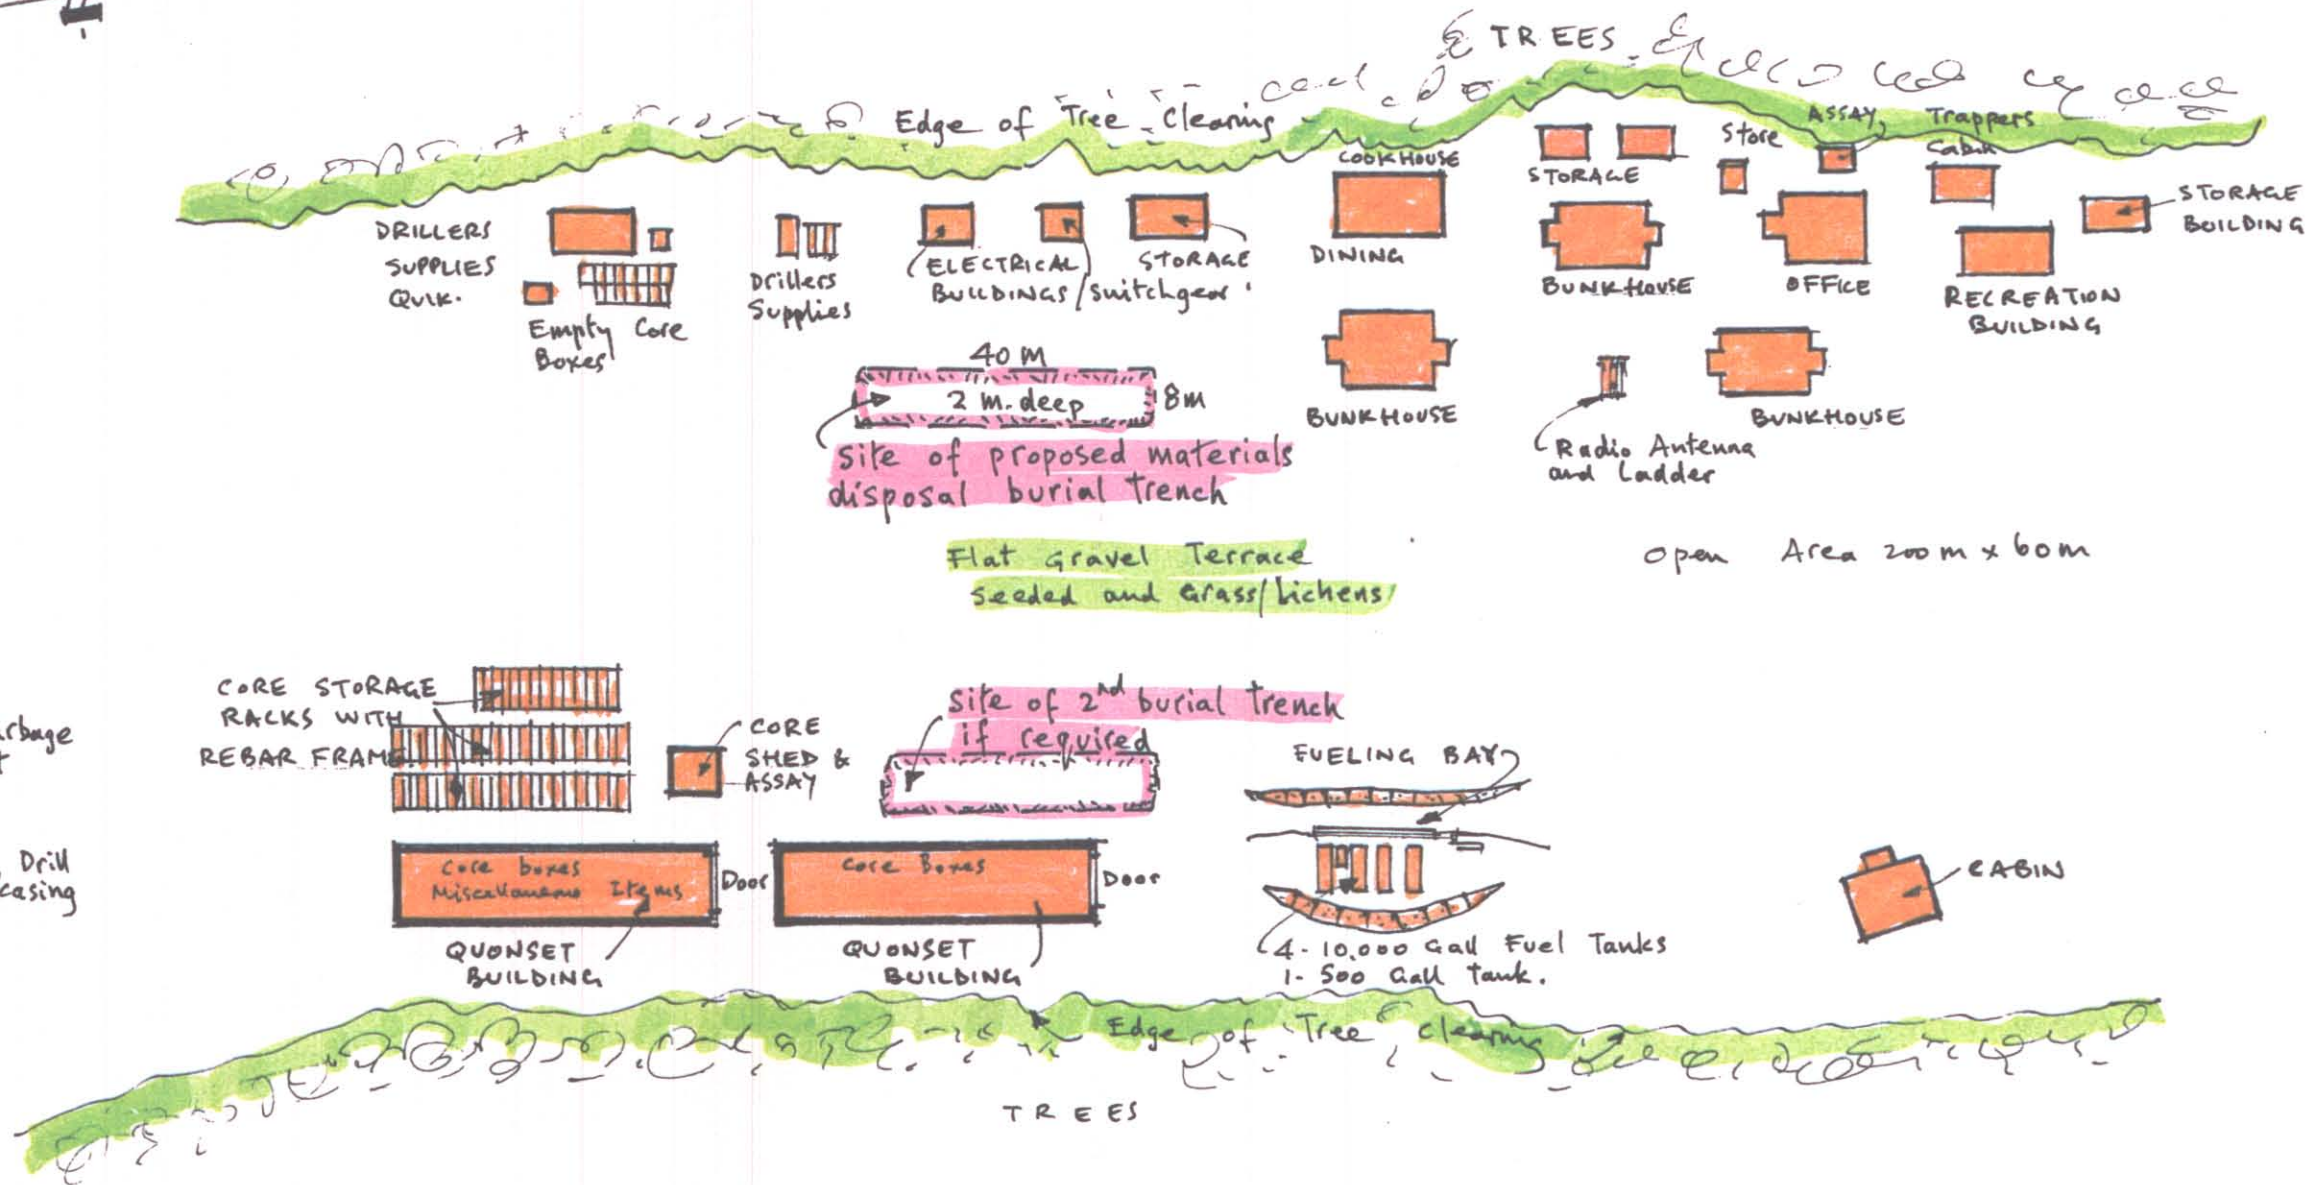 TREES
Edge of Tree Clearing
COOKHOUSE
DINING
STORAGE
Store
ASSAY
Trappers
Cabin
STORAGE
BUILDING
DRILLERS
SUPPLIES
QUIK.
Empty Core
Boxes
Drillers
Supplies
ELECTRICAL
BUILDINGS/Switchgear
STORAGE
BUNKHOUSE
OFFICE
RECREATION
BUILDING
40 M
2 m. deep
8m
BUNKHOUSE
Radio Antenna
and Ladder
BUNKHOUSE
Site of proposed materials
disposal burial trench
Flat Gravel Terrace
Seeded and Grass/Lichens
Open Area 200m x 60m
CORE STORAGE
RACKS WITH
REBAR FRAME
CORE
SHED &
ASSAY
Site of 2nd burial trench
if required
FUELING BAY
Drill
casing
Core boxes
Miscellaneous Items
Door
Core Boxes
Door
CABIN
QUONSET
BUILDING
QUONSET
BUILDING
4-10,000 Gall Fuel Tanks
1-500 Gall Tank.
Edge of Tree clearing
TREES